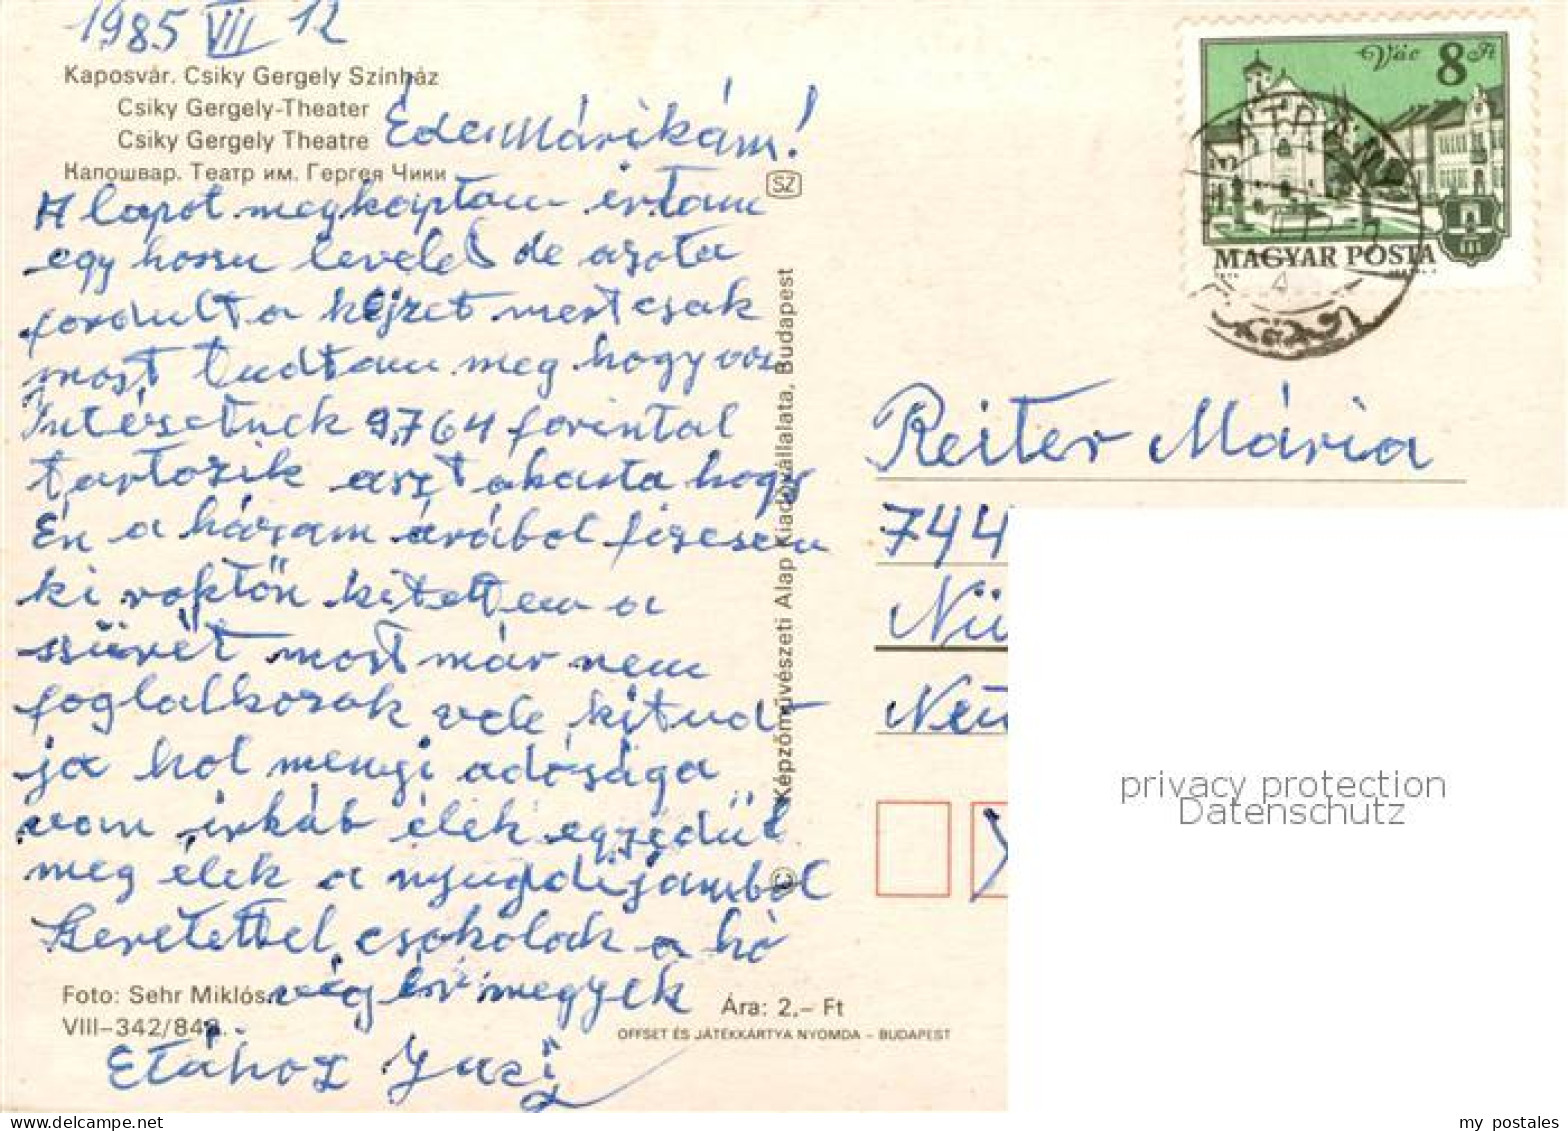 1985 VII 12
Kaposvár. Csiky Gergely Színház
Csiky Gergely-Theater
Csiky Gergely Theatre
Капошвар. Театр им. Гергея Чики
Édes Márikám!
SZ
A lapot megkaptam irtam
egy hossu levelet de azota
fordult a kejzet mert csak
most tudtam meg hogy
9,764 forintal
tartozik aszt akarta hogy
Én a házam árábol fizesem
ki roktön kitettem a
szürét most már nem
foglalkozok vele kitud-
ja hol menyi adósága
vam irkáb élek egyedül
meg élek a nyugdijamból
Szeretettel csokolak a hó
vég én megyek
Etához Juci
Képzőművészeti Alap Kiadóvállalata, Budapest
©
Foto: Sehr Miklós
VIII–342/848.
Ára: 2,– Ft
OFFSET ÉS JÁTÉKKÁRTYA NYOMDA – BUDAPEST
Vác 8 Ft
MAGYAR POSTA
Reiter Mária
744
Nü
Neu
privacy protection
Datenschutz
my postales